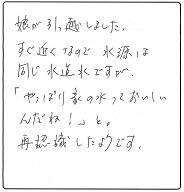 娘が引っ越しました。
すぐ近くなので水源は
同じ水道水ですが、
「やっぱり家の水っておいしい
んだね！」と。
再認識したようです。